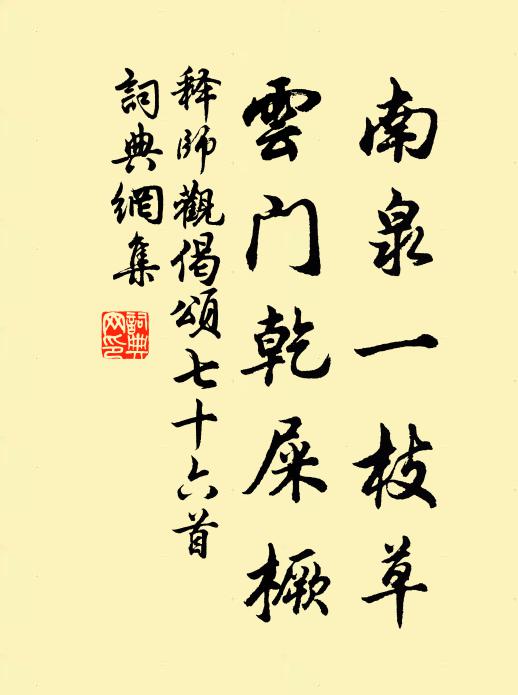 南泉一枝草
雲门乾屎橛
释师觀偈頌七十六首
詞典網集
詞典
网印